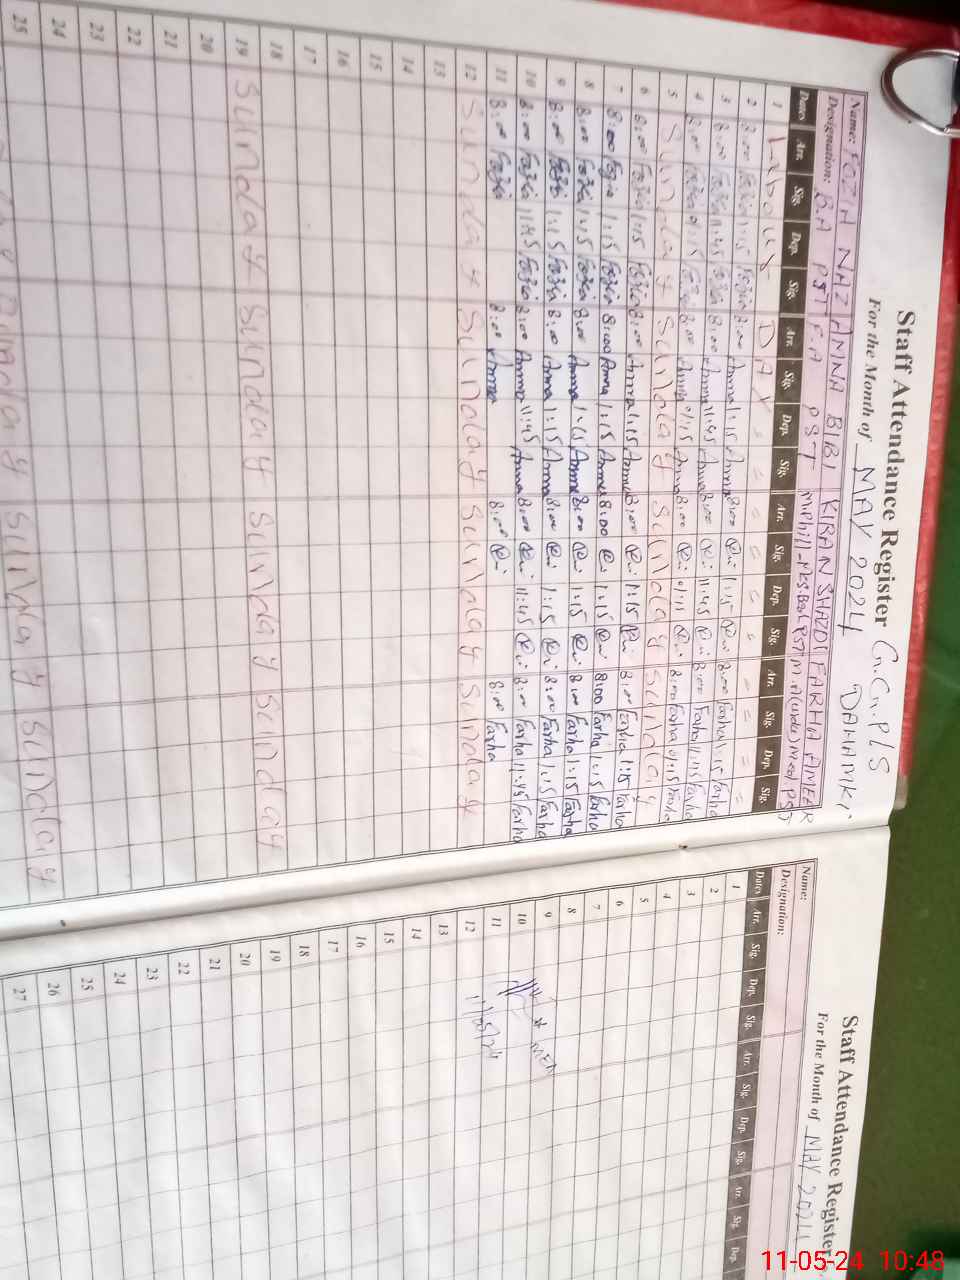 Staff Attendance Register G.G.P/S
For the Month of MAY 2024 DAHAMKI
Name: FOZIA NAZ AMNA BIBI KIRAN SHAZDI FARHA AMEER
Designation: B.A PST F.A PST M.phill-M.ed.Bed PST M.A(urdu) M.ed PST
Dates Arr. Sig. Dep. Sig. Arr. Sig. Dep. Sig. Arr. Sig. Dep. Sig. Arr. Sig. Dep. Sig.
1 Labour DAY
2 8:00 Fozia 1:15 Fozia 8:00 Amna 1:15 Amna 8:00 1:15 8:00 Farha 1:15 Farha
3 8:00 Fozia 11:45 Fozia 8:00 Amna 11:45 Amna 8:00 11:45 8:00 Farha 11:45 Farha
4 8:00 Fozia 01:15 Fozia 8:00 Amna 01:15 Amna 8:00 01:15 8:00 Farha 01:15 Farha
5 Sunday Sunday Sunday Sunday
6 8:00 Fozia 1:15 Fozia 8:00 Amna 1:15 Amna 8:00 1:15 8:00 Farha 1:15 Farha
7 8:00 Fozia 1:15 Fozia 8:00 Amna 1:15 Amna 8:00 1:15 8:00 Farha 1:15 Farha
8 8:00 Fozia 1:15 Fozia 8:00 Amna 1:15 Amna 8:00 1:15 8:00 Farha 1:15 Farha
9 8:00 Fozia 1:15 Fozia 8:00 Amna 1:15 Amna 8:00 1:15 8:00 Farha 1:15 Farha
10 8:00 Fozia 11:45 Fozia 8:00 Amna 11:45 Amna 8:00 11:45 8:00 Farha 11:45 Farha
11 8:00 Fozia 8:00 Amna 8:00 8:00 Farha
12 Sunday Sunday Sunday Sunday
13
14
15
16
17
18
19 Sunday Sunday Sunday Sunday
20
21
22
23
24
25
Sunday Sunday Sunday
Staff Attendance Register
For the Month of MAY 2024
Name:
Designation:
Dates Arr. Sig. Dep. Sig. Arr. Sig. Dep. Sig. Arr. Sig. Dep.
1
2
3
4
5
6
7
8
9
10
11
12
13
14
15
16
17
18
19
20
21
22
23
24
25
26
27
MEA
11/05/24
11-05-24 10:48